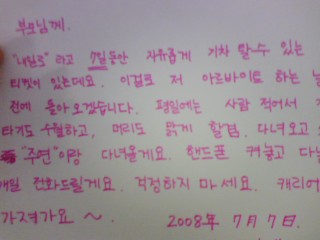 부모님께.
"내일로" 라고 7일동안 자유롭게 기차 탈수 있는
티켓이 있는데요. 이걸로 저 아르바이트 하는 날
전에 돌아오겠습니다. 평일에는 사람 적어서
타기도 수월하고, 머리도 맑게 할겸. 다녀오고
"주연"이랑 다녀올게요. 핸드폰 켜놓고
매일 전화드릴게요. 걱정하지 마세요. 캐리어
가져가요 ~.
2008年 7月 7日.